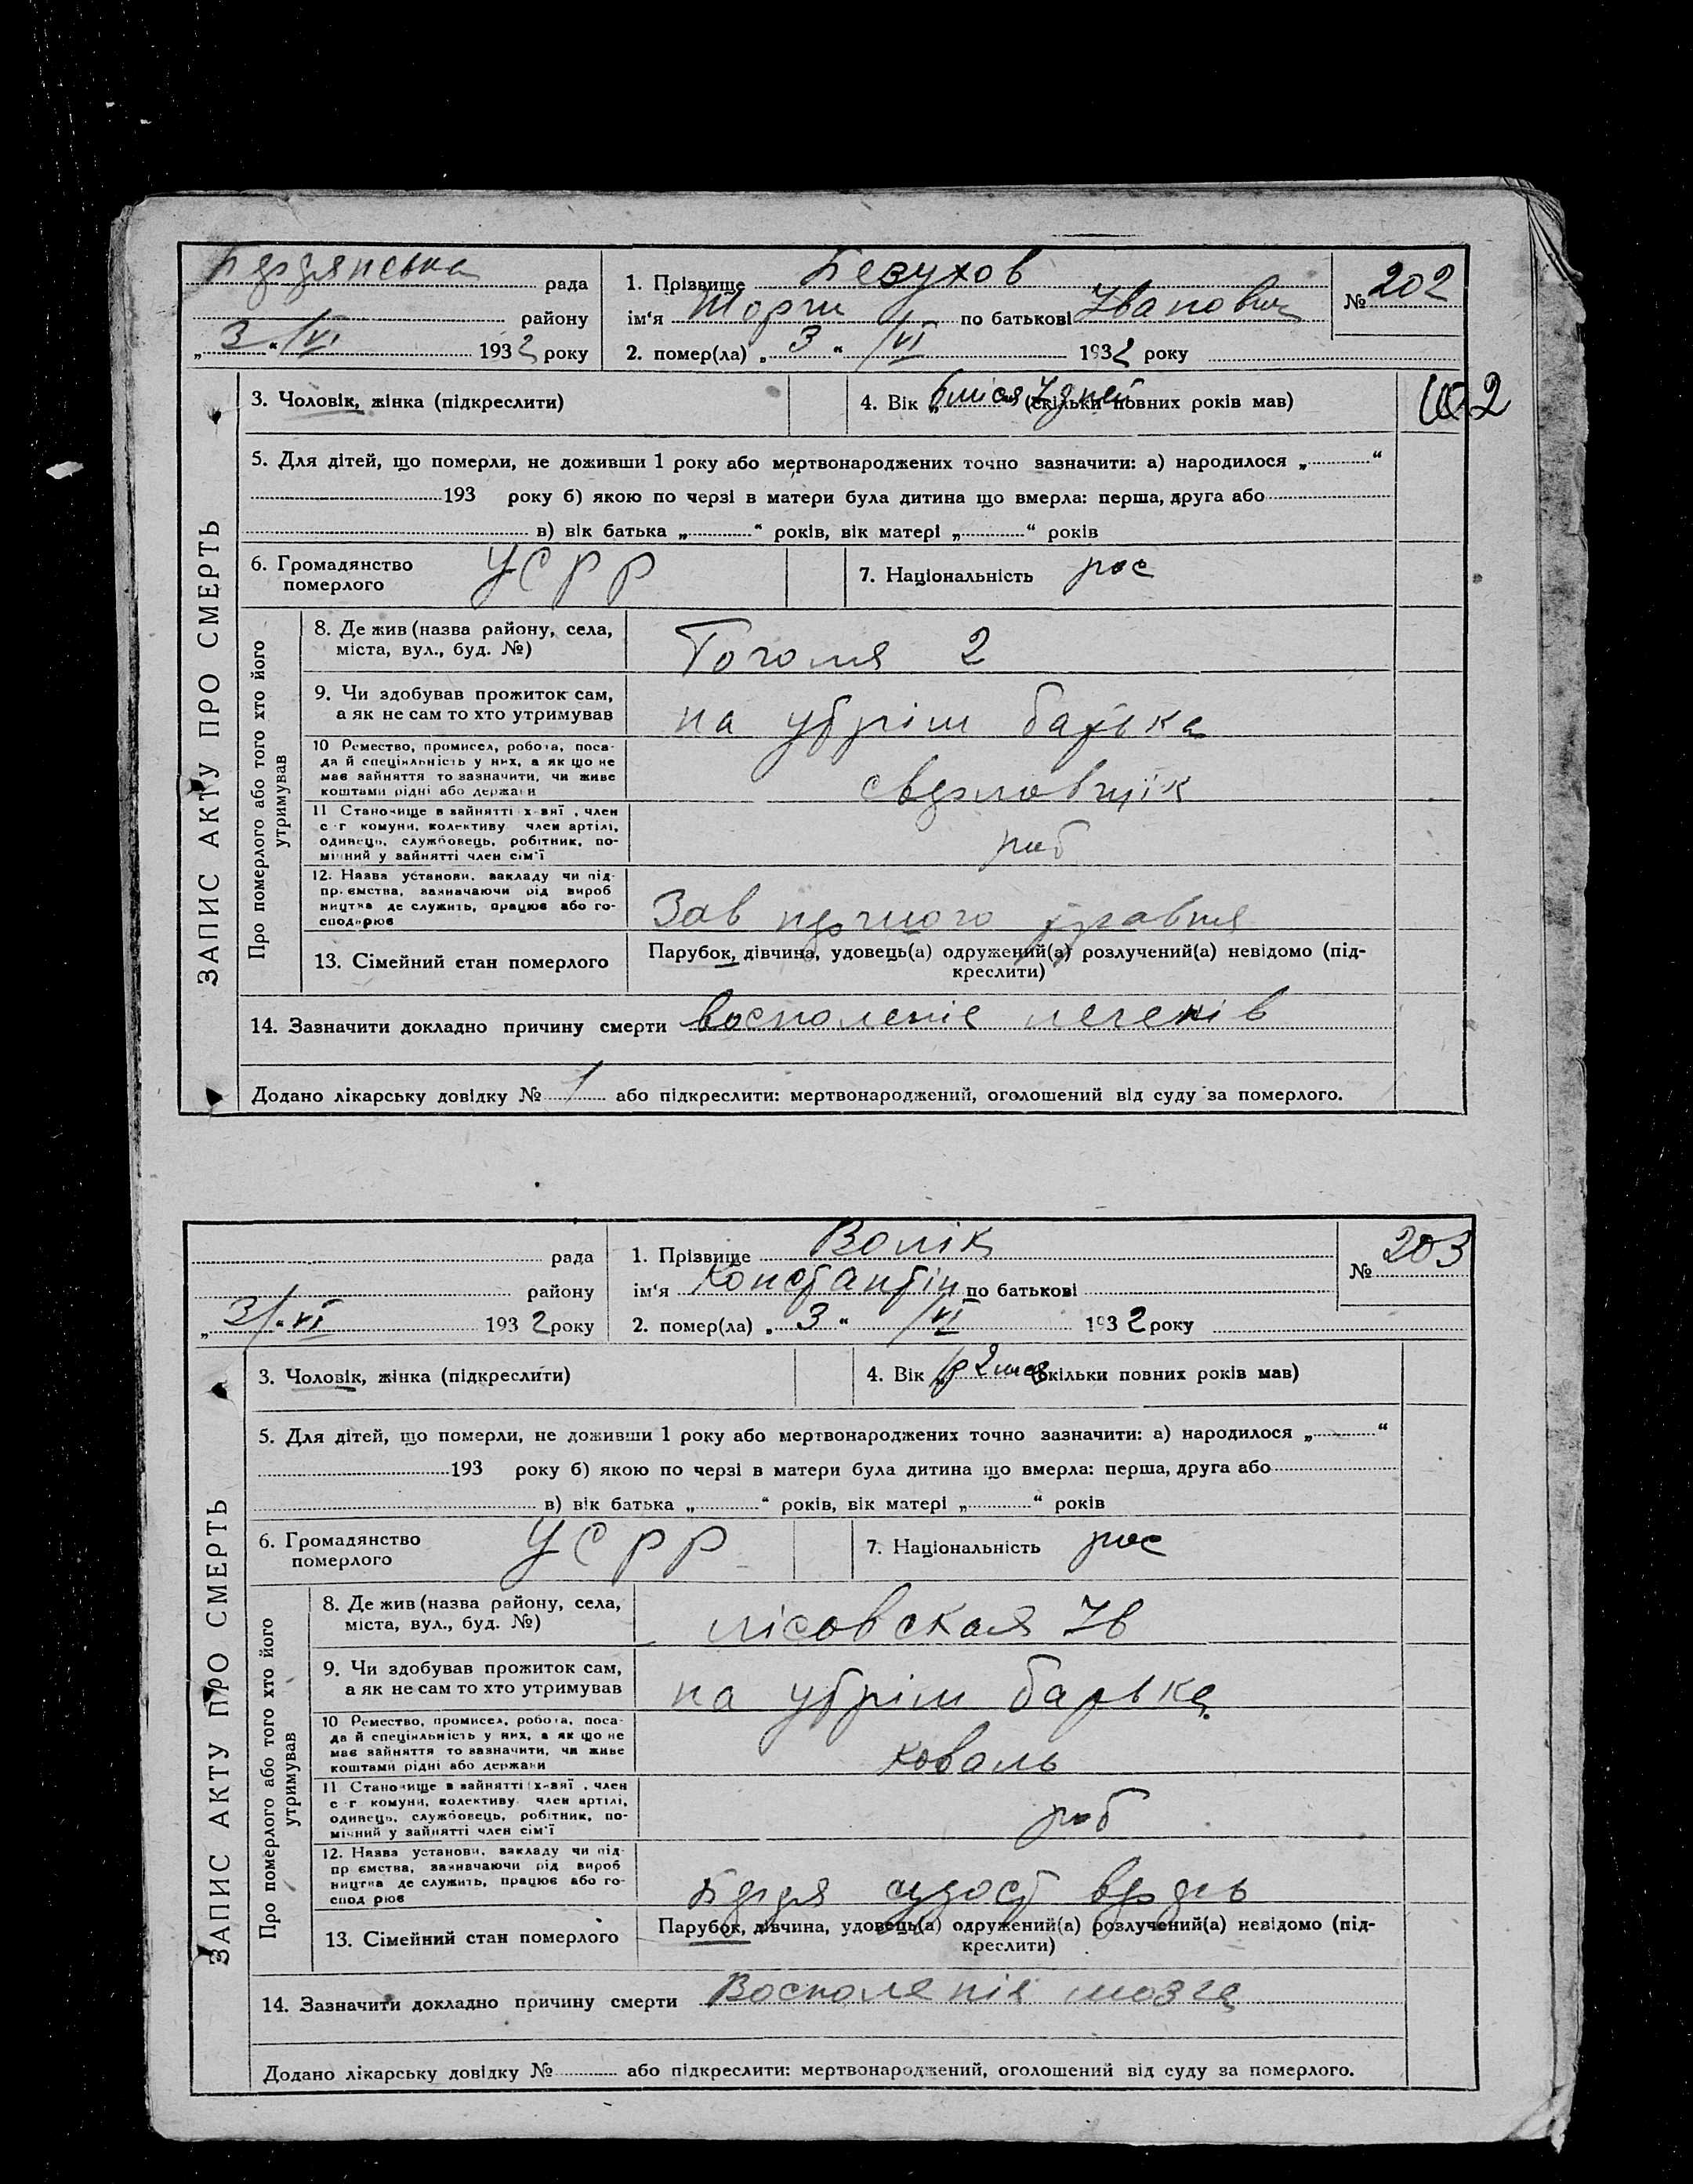 Бердянська рада
району
„ 3 “ /VI 1932 року
1. Прізвище Безухов
ім‘я по батькові Іванович
2. помер(ла) „ 3 “ /VI 1932 року
№ 202
3. Чоловік, жінка (підкреслити)
4. Вік „ 6 міся 7 дней (скільки повних років мав)
102
5. Для дітей, що померли, не доживши 1 року або мертвонароджених точно зазначити: а) народилося „ “
193 року б) якою по черзі в матери була дитина що вмерла: перша, друга або
в) вік батька „ “ років, вік матері „ “ років
6. Громадянство померлого УСРР
7. Національність рос
ЗАПИС АКТУ ПРО СМЕРТЬ
Про померлого або того хто його утримував
8. Де жив (назва району, села,
міста, вул., буд. №)
Гоголя 2
9. Чи здобував прожиток сам,
а як не сам то хто утримував
на утрім батька
10 Ремество, промисел, робота, поса-
да й спеціяльність у них, а як що не
має зайняття то зазначити, чи живе
коштами рідні або держави
сверловщік
11 Становище в зайнятті х-вяї, член
с-г комуни, колективу член артілі,
одинець, службовець, робітник, по-
мічний у зайнятті член сім‘ї
роб
12. Назва установи, закладу чи під-
пр-ємства, зазначаючи рід вироб
ництва де служить, працює або го-
сподарює
Зав першого травня
13. Сімейний стан померлого
Парубок, дівчина, удовець(а) одружений(а) розлучений(а) невідомо (під-
креслити)
14. Зазначити докладно причину смерти восполеніе легенів
Додано лікарську довідку № 1 або підкреслити: мертвонароджений, оголошений від суду за померлого.
рада
району
„ 3/ “ VI 1932 року
1. Прізвище Волік
ім‘я Константін по батькові
2. помер(ла) „ 3 “ /VI 1932 року
№ 203
3. Чоловік, жінка (підкреслити)
4. Вік „ 1р 2 мес (скільки повних років мав)
5. Для дітей, що померли, не доживши 1 року або мертвонароджених точно зазначити: а) народилося „ “
193 року б) якою по черзі в матери була дитина що вмерла: перша, друга або
в) вік батька „ “ років, вік матері „ “ років
6. Громадянство померлого УСРР
7. Національність рос
ЗАПИС АКТУ ПРО СМЕРТЬ
Про померлого або того хто його утримував
8. Де жив (назва району, села,
міста, вул., буд. №)
лісовская
9. Чи здобував прожиток сам,
а як не сам то хто утримував
на утрім батька
10 Ремество, промисел, робота, поса-
да й спеціяльність у них, а як що не
має зайняття то зазначити, чи живе
коштами рідні або держави
коваль
11 Становище в зайнятті х-вяї, член
с-г комуни, колективу член артілі,
одинець, службовець, робітник, по-
мічний у зайнятті член сім‘ї
роб
12. Назва установи, закладу чи під-
пр ємства, зазначаючи рід вироб
ництва де служить, працює або го-
спод рює
Бердя судост
13. Сімейний стан померлого
Парубок, дівчина, удовець(а) одружений(а) розлучений(а) невідомо (під-
креслити)
14. Зазначити докладно причину смерти Восполенія мозга
Додано лікарську довідку № або підкреслити: мертвонароджений, оголошений від суду за померлого.